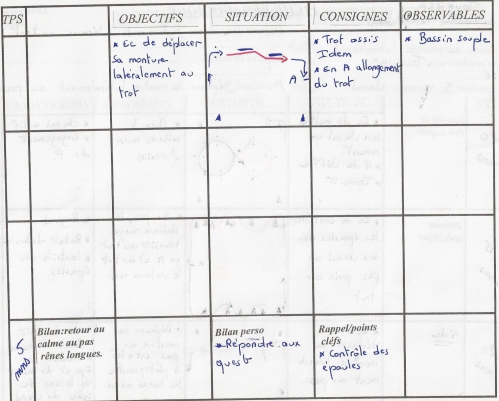 TPS OBJECTIFS SITUATION CONSIGNES OBSERVABLES
* Ec de déplacer
sa monture
latéralement au
trot
A
* Trot assis
Idem
* En A allongement
du trot
* Bassin souple
5
mns
Bilan:retour au
calme au pas
rênes longues.
Bilan perso
* Répondre aux
quest
Rappel/points
cléfs
* Contrôle des
épaules